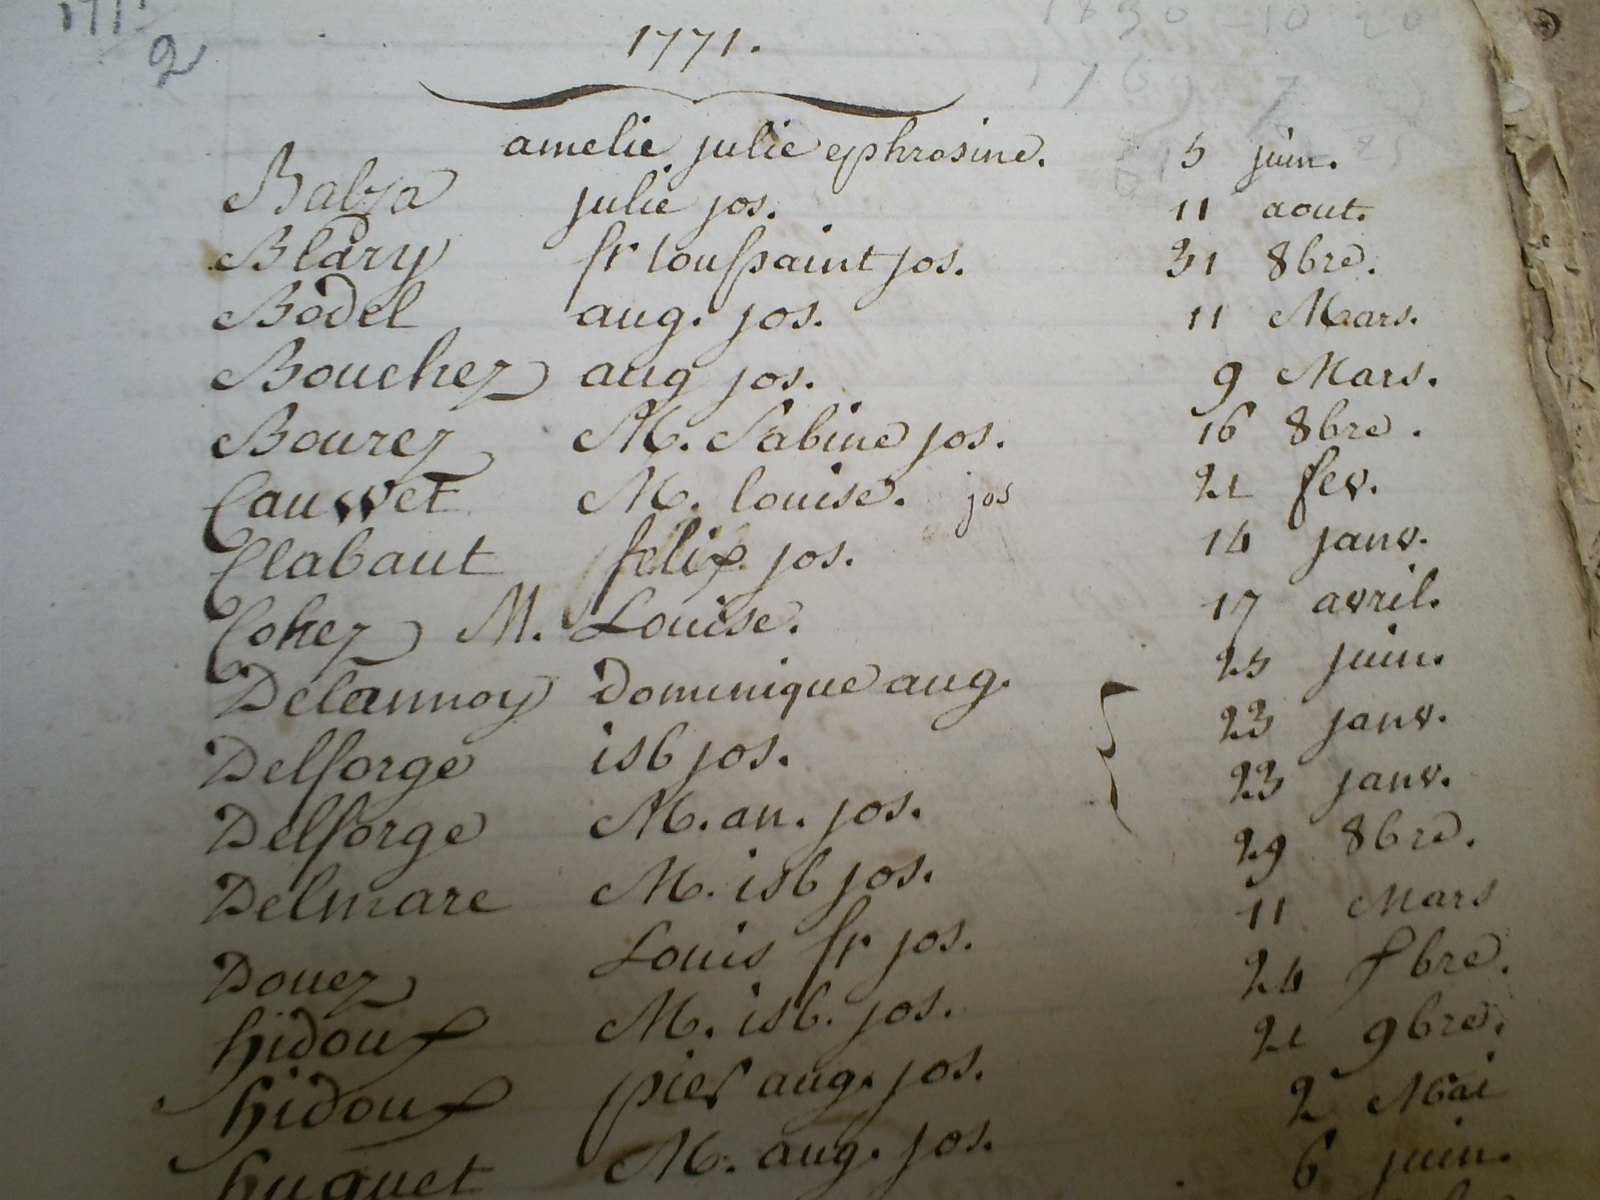 2
1771.
amelie julie ephrosine. 5 juin.
Balza julie jos. 11 aout.
Blary fr toussaint jos. 31 8bre.
Bodel aug. jos. 11 Mars.
Bouchez aug jos. 9 Mars.
Bourez M. Sabine jos. 16 8bre.
Cauwet M. louise. jos 21 fev.
Clabaut felix jos. 14 janv.
Cohez M. Louise. 17 avril.
Delannoy Dominique aug. 25 juin.
Delforge isb jos. 23 janv.
Delforge M. an. jos. 23 janv.
Delmare M. isb jos. 29 8bre.
Douez Louis fr jos. 11 Mars
hidoux M. isb. jos. 24 7bre.
hidoux pier aug. jos. 21 9bre.
huquet M. aug. jos. 2 Mai
6 juin.